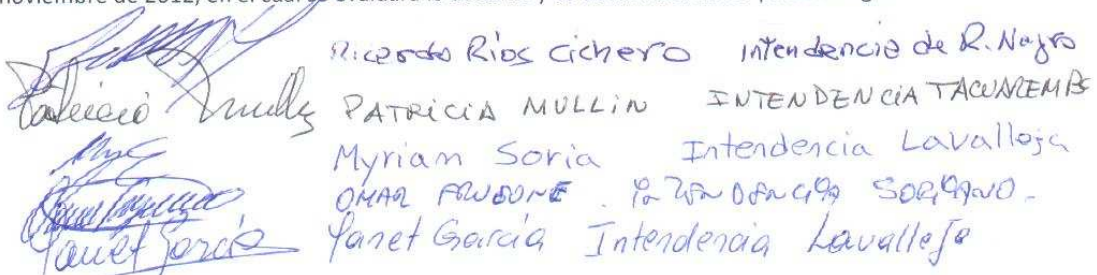 noviembre de 2012, en el cuadro
Ricardo Ríos Cichero Intendencia de R. Negro
Patricia Mullin PATRICIA MULLIN INTENDENCIA TACUAREMBO
Myrian Soria Intendencia Lavalleja
OMAR INTENDENCIA SORIANO.
Yanet García Yanet García Intendencia Lavalleja